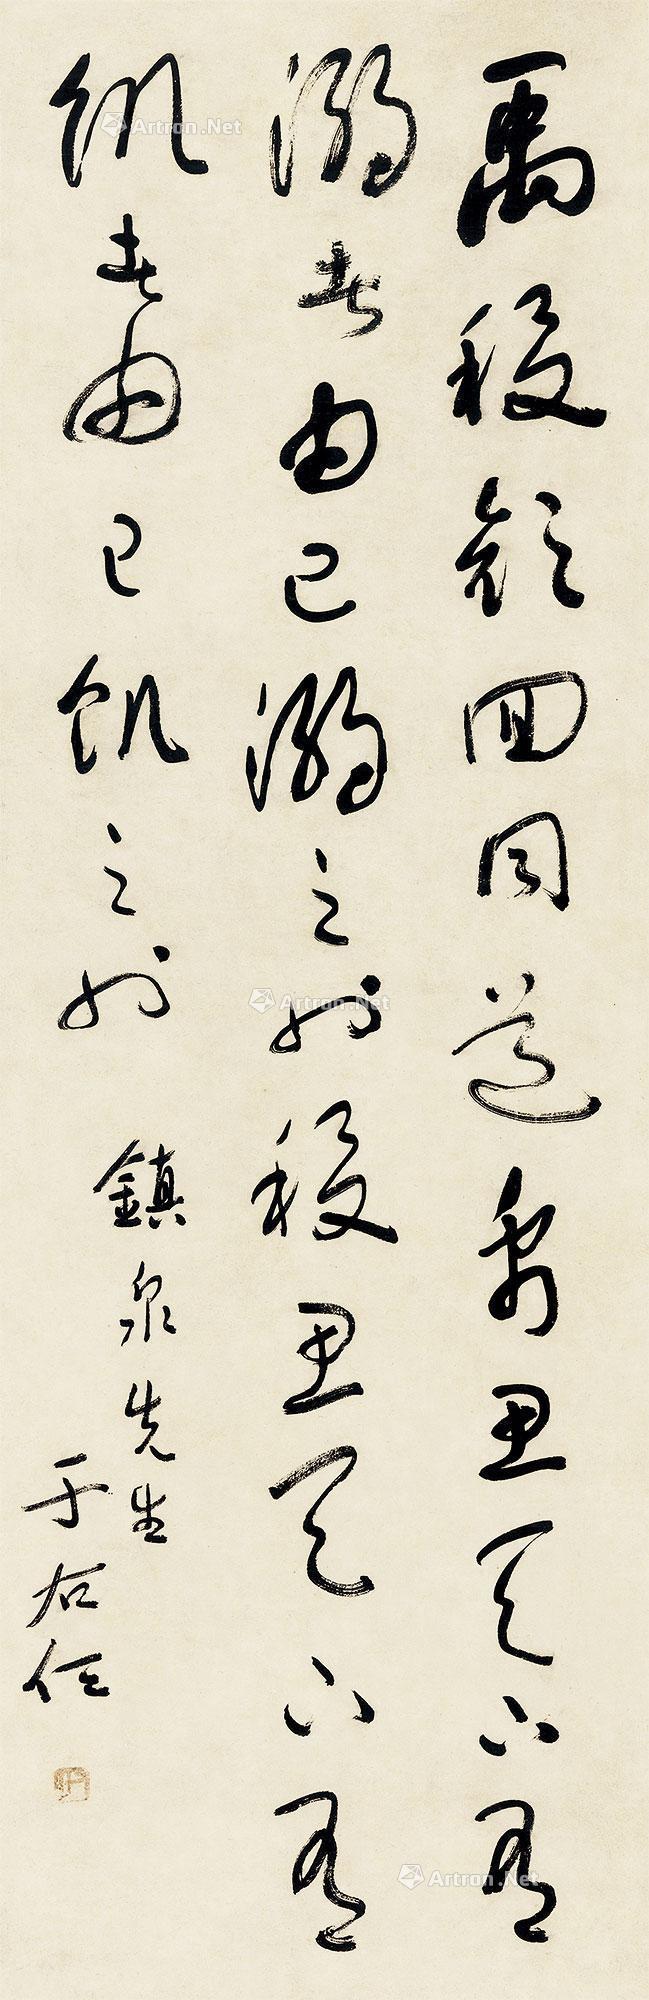 禹稷顏回同道禹思天下有
溺者由己溺之也稷思天下有
飢者由己飢之也
鎮泉先生
于右任
Artron.Net
Artron.Net
Artron.Net